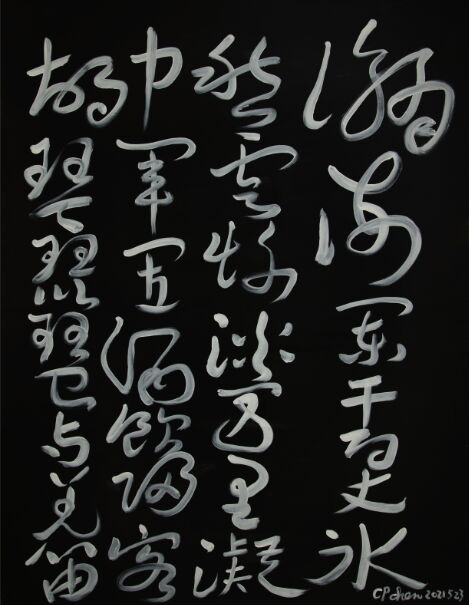 瀚海阑干百丈冰
愁云惨淡万里凝
中军置酒饮归客
胡琴琵琶与羌笛
CP chen 2021523